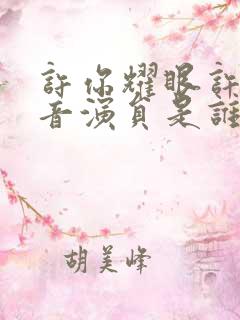 許你耀眼許
音演員是誰
胡美峰